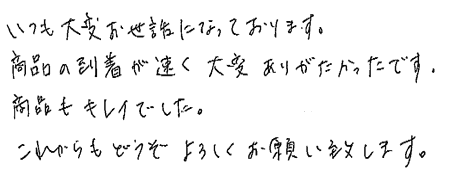 いつも大変お世話になっております。
商品の到着が速く大変ありがたかったです.
商品もキレイでした。
これからもどうぞよろしくお願い致します。